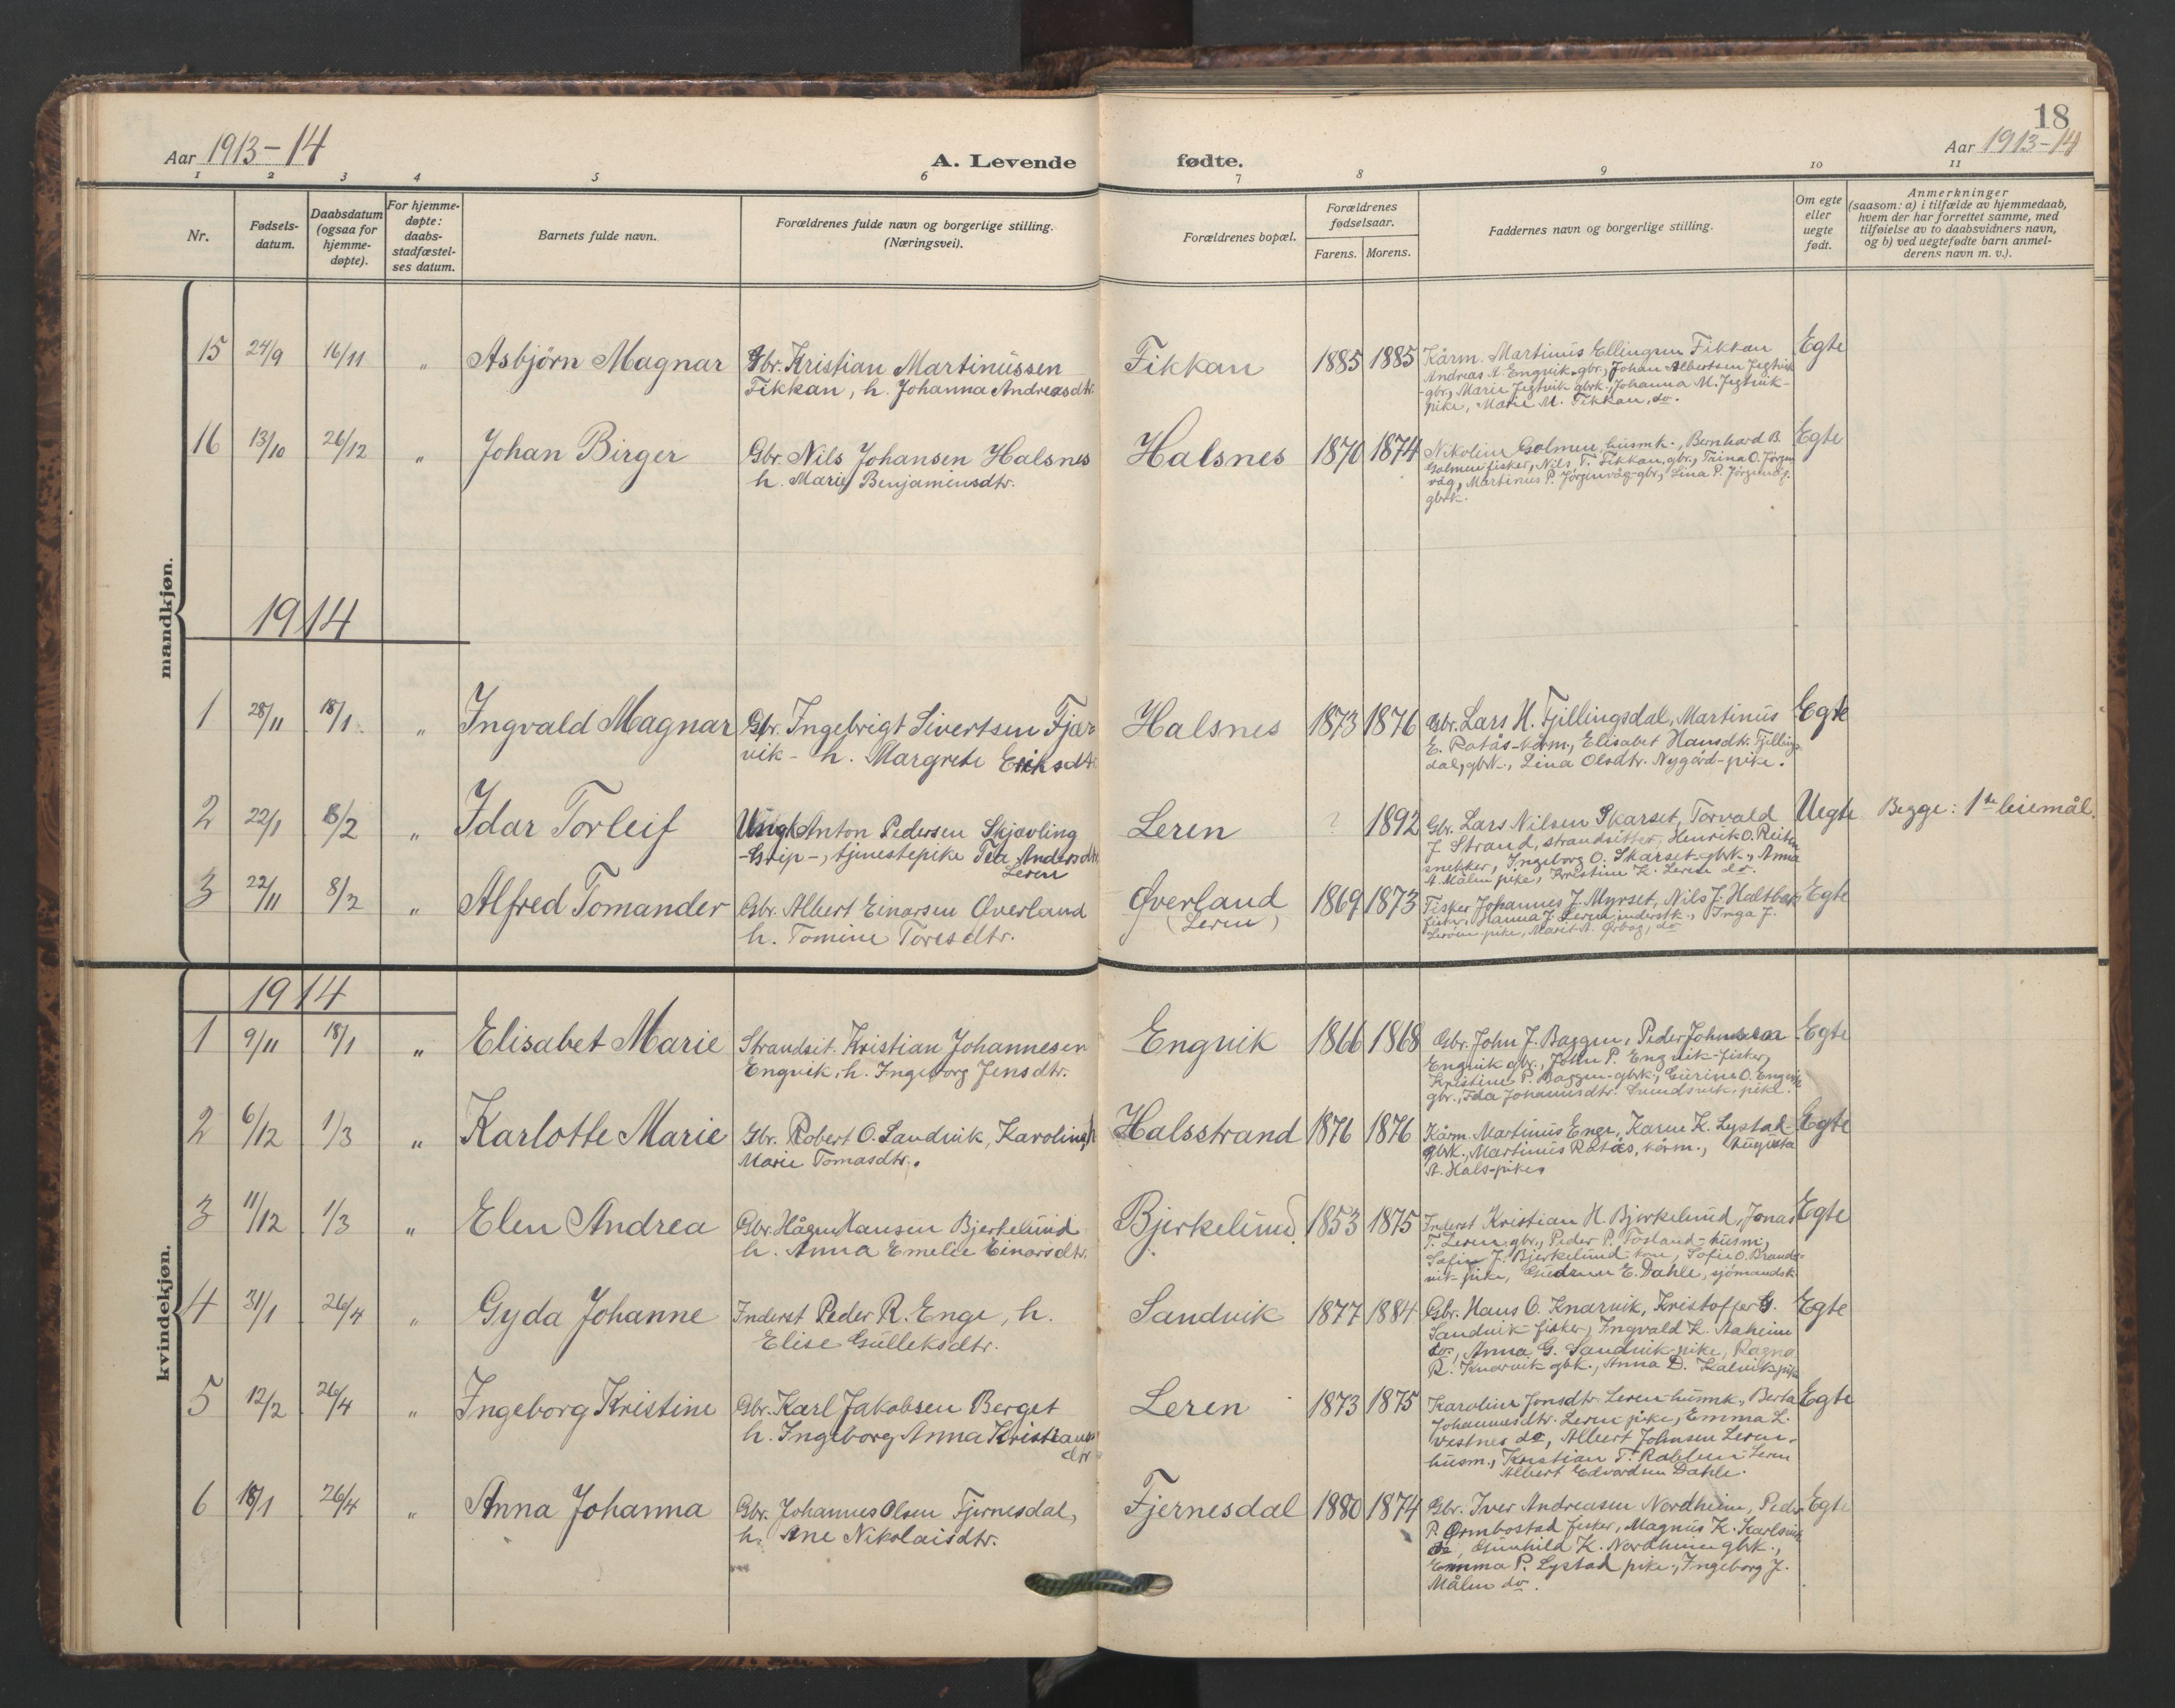 18
Aar 1913-14
A. Levende fødte.
Aar 1913-14
1 2 3 4 5 6 7 8 9 10 11
Nr.
Fødsels-
datum.
Daabsdatum
(ogsaa for
hjemme-
døpte).
For hjemme-
døpte:
daabs-
stadfæstel-
ses datum.
Barnets fulde navn.
Forældrenes fulde navn og borgerlige stilling.
(Næringsvei).
Forældrenes bopæl.
Forældrenes
fødselsaar.
Farens. Morens.
Faddernes navn og borgerlige stilling.
Om egte
eller
uegte
født.
Anmerkninger
(saasom: a) i tilfælde av hjemmedaab,
hvem der har forrettet samme, med
tilføielse av to daabsvidners navn,
og b) ved uegtefødte barn anmel-
derens navn m. v.).
mandkjøn.
15 24/9 16/11 " Asbjörn Magnar
Gbr. Kristian Martinussen
Fikkan, h. Johanna Andreasdtr.
Fikkan 1885 1885
Kårm. Martinus Ellingsen Fikkan
Andreas A. Engvik gbr., Johan Albertsen Jegtvik
gbr., Marie Jegtvik gbrk. Johanna M. Jegtvik-
pike, Marie M. Fikkan, do.
Egte
16 13/10 26/12 " Johan Birger
Gbr. Nils Johansen Halsnes
h. Marie Benjamensdtr.
Halsnes 1870 1874
Nikoline Golmen husmk., Bernhard B.
Golmen fisker, Nils T. Fikkan, gbr., Trina O. Jörgen
våg, Martinus P. Jörgenvåg gbr., Lina P. Jörgenvåg
gbrk.
Egte
1914
1 28/11 18/1 " Ingvald Magnar
Gbr. Ingebrigt Sivertsen Fjær
vik - h. Margrete Eriksdtr.
Halsnes 1873 1876
Gbr. Lars H. Fjillingsdal, Martinus
E. Rotås-kårm., Elisabet Hansdtr. Fjillings
dal, gbrk., Lina Olsdtr. Nygård-pike.
Egte
2 22/1 8/2 " Idar Torleif
Ungk Anton Pedersen Skjavling
-Grip-, tjenestepike Tea Andersdtr.
Leren
Leren ? 1892
Gbr. Lars Nilsen Skarset, Torvald
J. Strand, strandsitter, Henrik O. Reiten
snekker, Ingeborg O. Skarset-gbrk., Anna
A. Målen pike, Kristine K. Leren do.
Uegte
Begge: 1ste leiemål.
3 22/11 8/2 " Alfred Tomander
Gbr. Albert Einarsen Øverland
h. Tomine Toresdtr.
Øverland
(Leren)
1869 1873
Fisker Johannes J. Myrset, Nils J. Holtbak
Hanna J. Leren inderstk., Inga J.
Leren pike, Marit A. Ørbog, do
Egte
kvindekjøn.
1914
1 9/11 18/1 " Elisabet Marie
Strandsit. Kristian Johannesen
Engvik, h. Ingeborg Jensdtr.
Engvik 1866 1868
Gbr. John J. Baggen, Peder Johnsen
Engvik gbr., John P. Engvik-fisker,
Kristine P. Baggen-gbrk., Gurine O. Engvik
gbr., Ida Johannesdtr. Sundsvik, pike.
Egte
2 6/12 1/3 " Karlotte Marie
Gbr. Robert O. Sandvik, Karoline
Marie Tomasdtr.
Halsstrand 1876 1876
Kårm. Martinus Enge, Karen K. Lystad-
gbrk., Martinus Rotås, kårm., Augusta
A. Hals-pike
Egte
3 11/12 1/3 " Elen Andrea
Gbr. Hågen Hansen Bjerkelund
h. Anna Emelie Einarsdtr.
Bjerkelund. 1853 1875
Inderst Kristian H. Bjerkelund, Jonas
T. Leren gbr., Peder P. Tosland-husm.,
Sofie J. Bjerkelund-kon, Sofie O. Brands-
vik pike, Gudrun E. Dahle, sjömandsk.
Egte
4 31/1 26/4 " Gyda Johanne
Inderst Peder R. Enge, h.
Elise Gulleksdtr.
Sandvik 1877 1884
Gbr. Hans O. Knarvik, Kristoffer G.
Sandvik-fisker, Ingvald K. Aaheim
do., Anna G. Sandvik-pike, Ragna
R. Knarvik gbk., Anna D. Kalvik pike
Egte
5 12/2 26/4 " Ingeborg Kristine
Gbr. Karl Jakobsen Berget
h. Ingeborg Anna Kristians
dtr
Leren 1873 1875
Karoline Jonsdtr. Leren husmk., Berta
Johannesdtr. Leren pike, Emma L.
Vestnes do, Albert Johnsen Leren-
husm., Kristian T. Leren
Albert Edvardsen Dahle.
Egte
6 18/1 26/4 " Anna Johanna
Gbr. Johannes Olsen Fjernesdal,
h. Ane Nikolaisdtr.
Fjernesdal 1880 1874
Gbr. Iver Andreasen Nordheim, Peder
P. Ormbostad fisker, Magnus K. Karlsvik
do, Gunhild K. Nordheim gbrk.,
Emma P. Lystad pike, Ingeborg J.
Målen do.
Egte